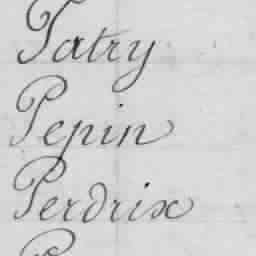 Patry
Pepin
Perdrix